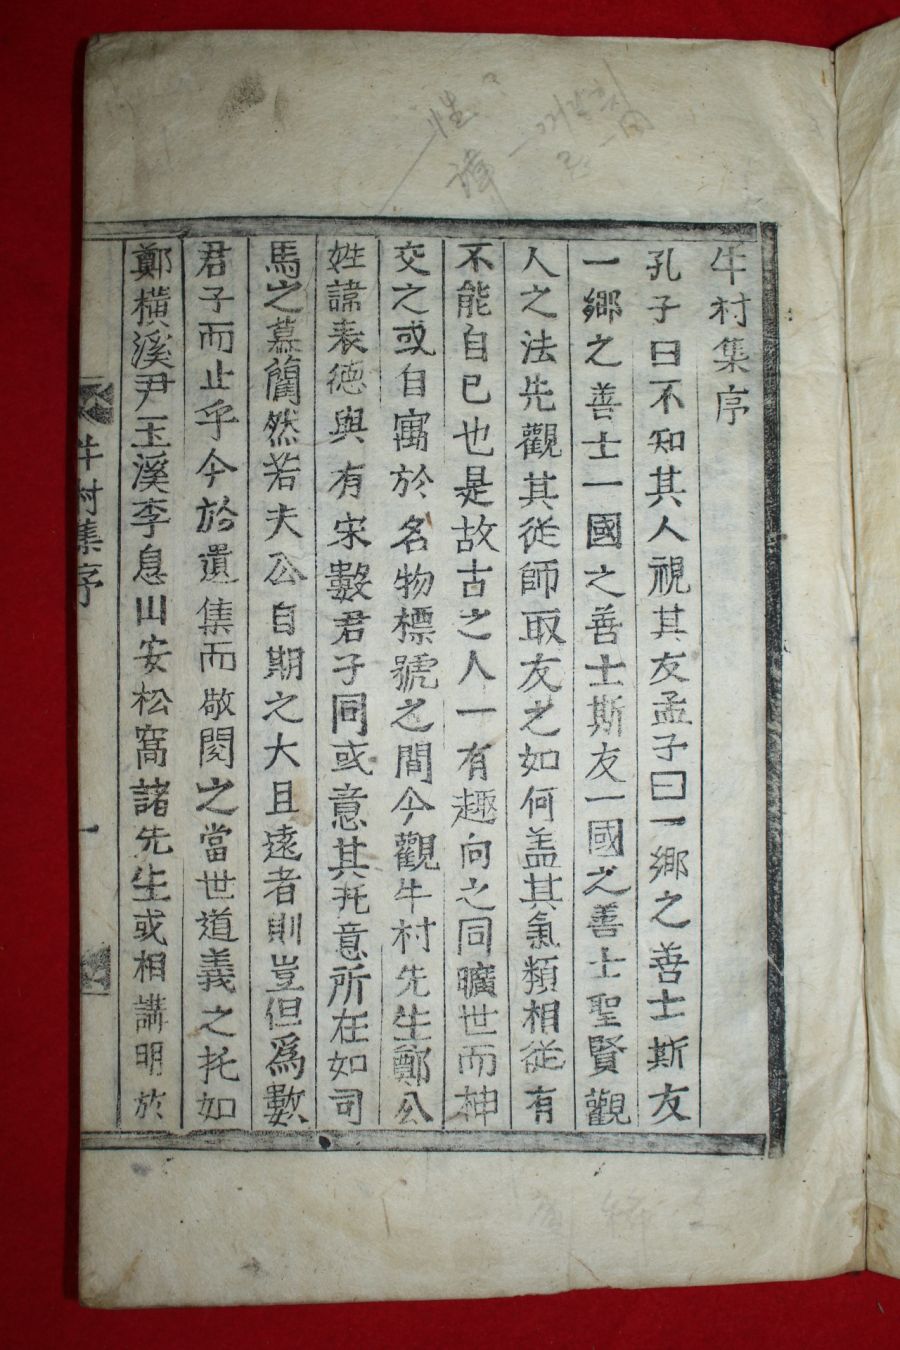 牛村集序
孔子曰不知其人視其友孟子曰一鄉之善士斯友
一鄉之善士一國之善士斯友一國之善士聖賢觀
人之法先觀其從師取友之如何盖其氣類相從有
不能自已也是故古之人一有趣向之同曠世而神
交之或自寓於名物標號之間今觀牛村先生鄭公
姓諱表德與有宋數君子同或意其托意所在如司
馬之慕藺然若夫公自期之大且遠者則豈但爲數
君子而止乎今於遺集而敬閱之當世道義之托如
鄭橫溪尹玉溪李息山安松窩諸先生或相講明於
牛村集序
一
性?
諱